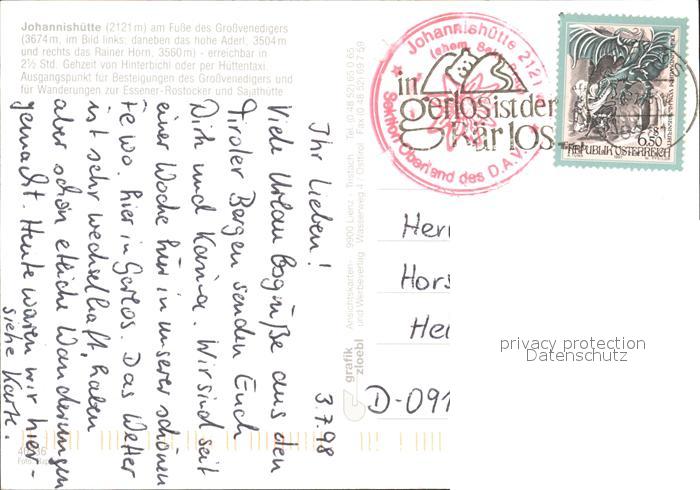 Johannishütte (2121 m) am Fuße des Großvenedigers
(3674 m, im Bild links; daneben das hohe Aderl, 3504 m
und rechts das Rainer Horn, 3560 m) - erreichbar in
2½ Std. Gehzeit von Hinterbichl oder per Hüttentaxi.
Ausgangspunkt für Besteigungen des Großvenedigers und
für Wanderungen zur Essener-Rostocker und Sajathütte
3.7.98
Ihr Lieben!
Viele Urlaubsgrüße aus den
Tiroler Bergen senden Euch
Dirk und Karina. Wir sind seit
einer Woche hier in unserer schönen
Fewo. hier in Gerlos. Das Wetter
ist sehr wechselhaft, haben
aber schon etliche Wanderungen
gemacht. Heute waren wir hier-
siehe Karte.
grafik
zloebl
Ansichtskarten- 9900 Lienz - Tristach Tel. (0 48 52) 65 0 65
und Werbeverlag Wasserweg 4 / Osttirol Fax (0 48 52) 63 7 59
Johannishütte 2121
Sektion Oberland des D.A.V.
in
gerlos ist der
Kar los
6.50
REPUBLIK ÖSTERREICH
Herr
Hors
Hei
D-091
privacy protection
Datenschutz